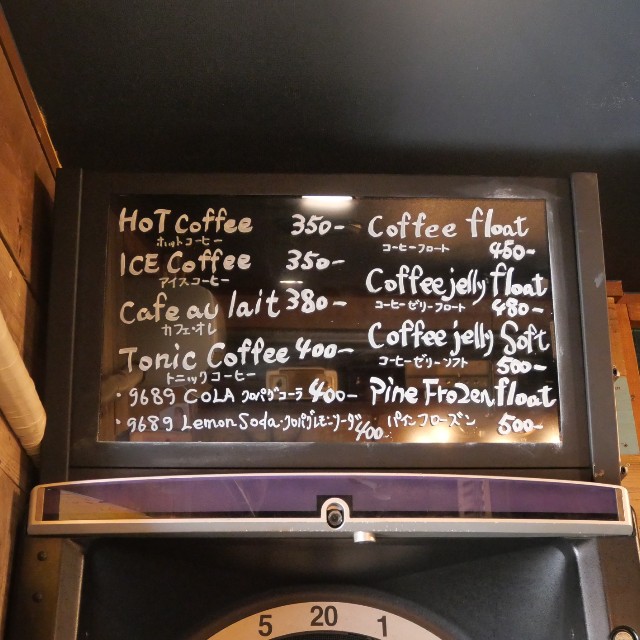 HOT Coffee 350-
ホットコーヒー
ICE Coffee 350-
アイスコーヒー
Cafe au lait 380-
カフェ・オレ
Tonic Coffee 400-
トニックコーヒー
・9689 COLA クロパグコーラ 400-
・9689 Lemon Soda・クロパグレモンソーダ 400
Coffee float
コーヒーフロート 450-
Coffee jelly float
コーヒーゼリーフロート 480-
Coffee jelly Soft
コーヒーゼリーソフト 500-
Pine Frozen float
パインフローズン 500-
5 20 1